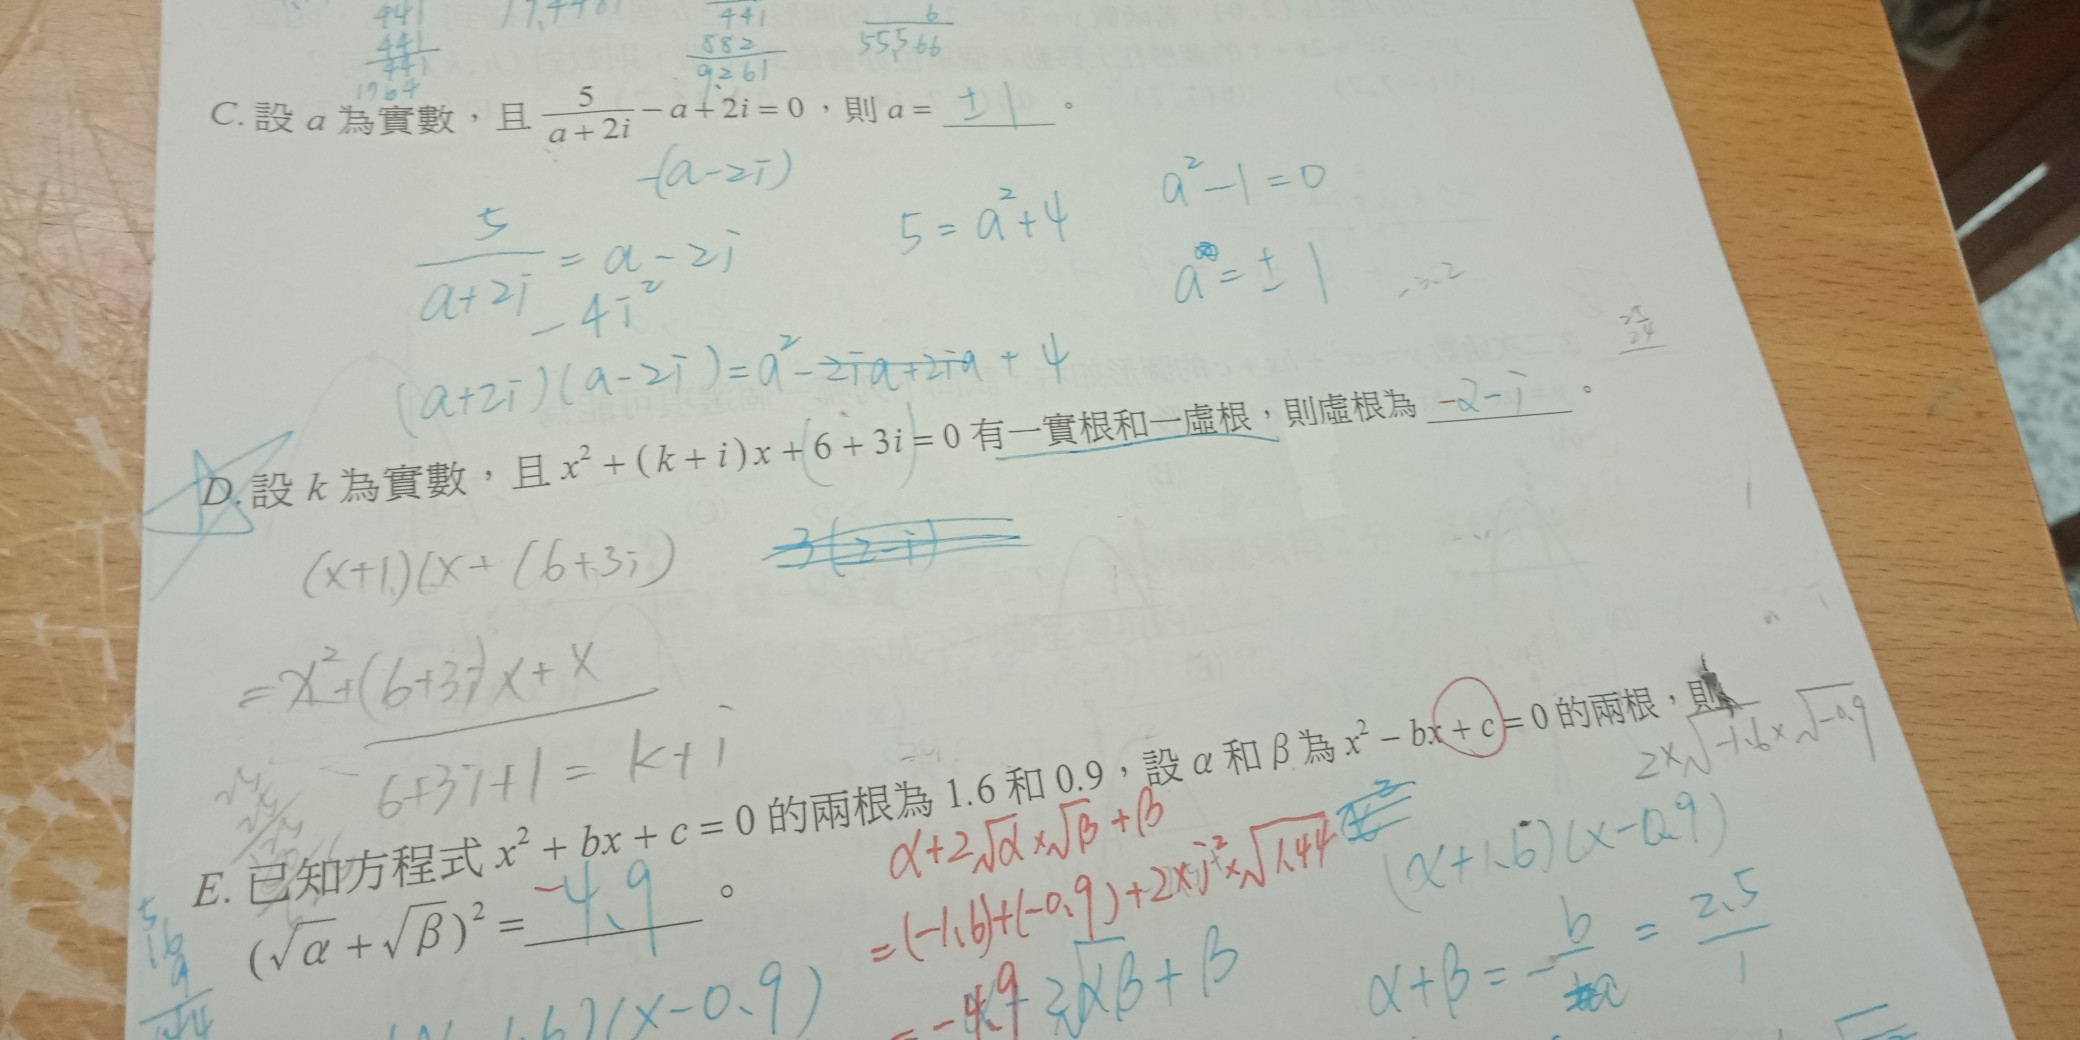 441
441
441
1764
17,4461
441
882
9261
6
55,566
C. 設 a 為實數，且 5/(a+2i) − a + 2i = 0，則 a = ±1。
-(a-2i)
5/(a+2i) = a-2i
5 = a²+4
a²-1=0
a=±1
-4i²
(a+2i)(a-2i)=a²-2ia+2ia+4
D. 設 k 為實數，且 x² + (k+i)x + (6+3i) = 0 有一實根和一虛根，則虛根為 -2-i。
3(2-i)
(x+1)(x+(6+3i)
=x²+(6+3i)x+x
6+3i+1=k+i
E. 已知方程式 x² + bx + c = 0 的兩根為 1.6 和 0.9，設 α 和 β 為 x² − bx + c = 0 的兩根，則
(√α + √β)² = -4.9。
2×√-1.6×√-0.9
α+2√α×√β+β
=(-1.6)+(-0.9)+2×i²×√1.44
=-4.9
(x+1.6)(x-0.9)
α+β=-b/a=2.5/1
2√αβ+β
(x-0.9)